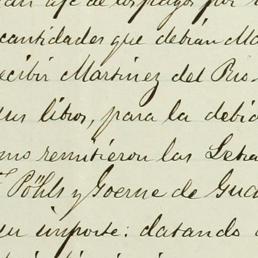 de los pagos por
cantidades que debian
recibir Martinez del Rio
sus libros, para la debid
como remitieron las Letra
Pöhls y Goerne de Gua
su importe: datando